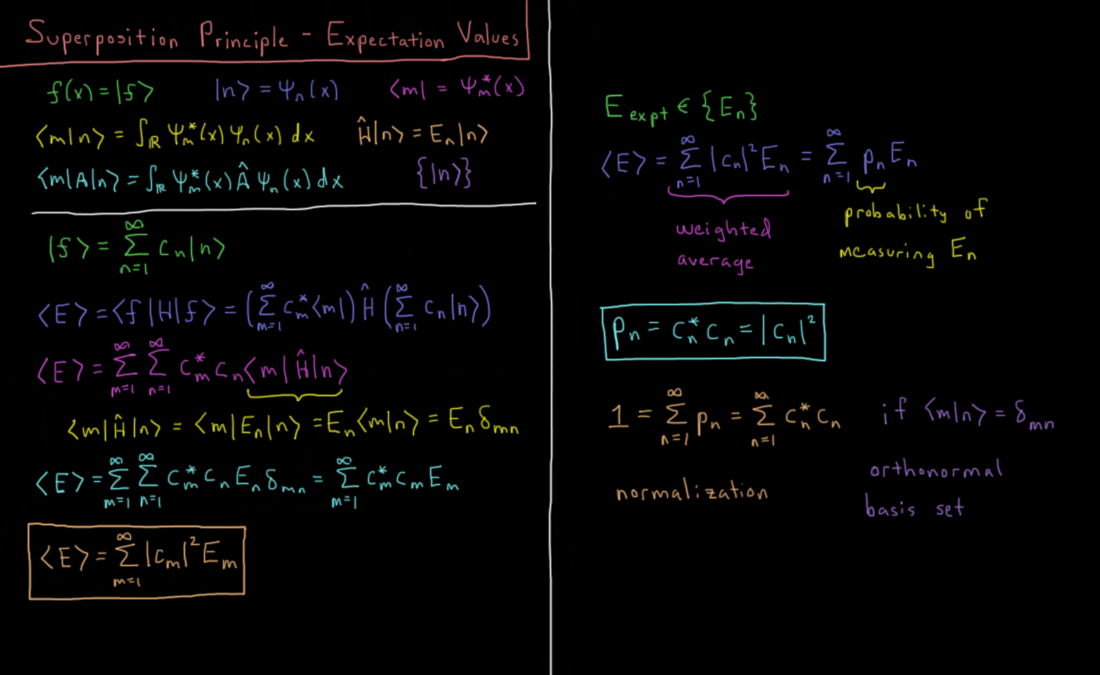 Superposition Principle - Expectation Values
f(x) = |f> |n> = Ψₙ(x) <m| = Ψₘ*(x)
<m|n> = ∫_ℝ Ψₘ*(x) Ψₙ(x) dx Ĥ|n> = Eₙ|n>
<m|A|n> = ∫_ℝ Ψₘ*(x) Â Ψₙ(x) dx {|n>}
|f> = ∑_{n=1}^∞ cₙ|n>
<E> = <f|H|f> = (∑_{m=1}^∞ cₘ* <m|) Ĥ (∑_{n=1}^∞ cₙ|n>)
<E> = ∑_{m=1}^∞ ∑_{n=1}^∞ cₘ* cₙ <m|Ĥ|n>
<m|Ĥ|n> = <m|Eₙ|n> = Eₙ<m|n> = Eₙ δ_{mn}
<E> = ∑_{m=1}^∞ ∑_{n=1}^∞ cₘ* cₙ Eₙ δ_{mn} = ∑_{m=1}^∞ cₘ* cₘ Eₘ
<E> = ∑_{m=1}^∞ |cₘ|² Eₘ
E_{expt} ∈ {Eₙ}
<E> = ∑_{n=1}^∞ |cₙ|² Eₙ = ∑_{n=1}^∞ pₙ Eₙ
weighted
average
probability of
measuring Eₙ
pₙ = cₙ* cₙ = |cₙ|²
1 = ∑_{n=1}^∞ pₙ = ∑_{n=1}^∞ cₙ* cₙ if <m|n> = δ_{mn}
normalization
orthonormal
basis set